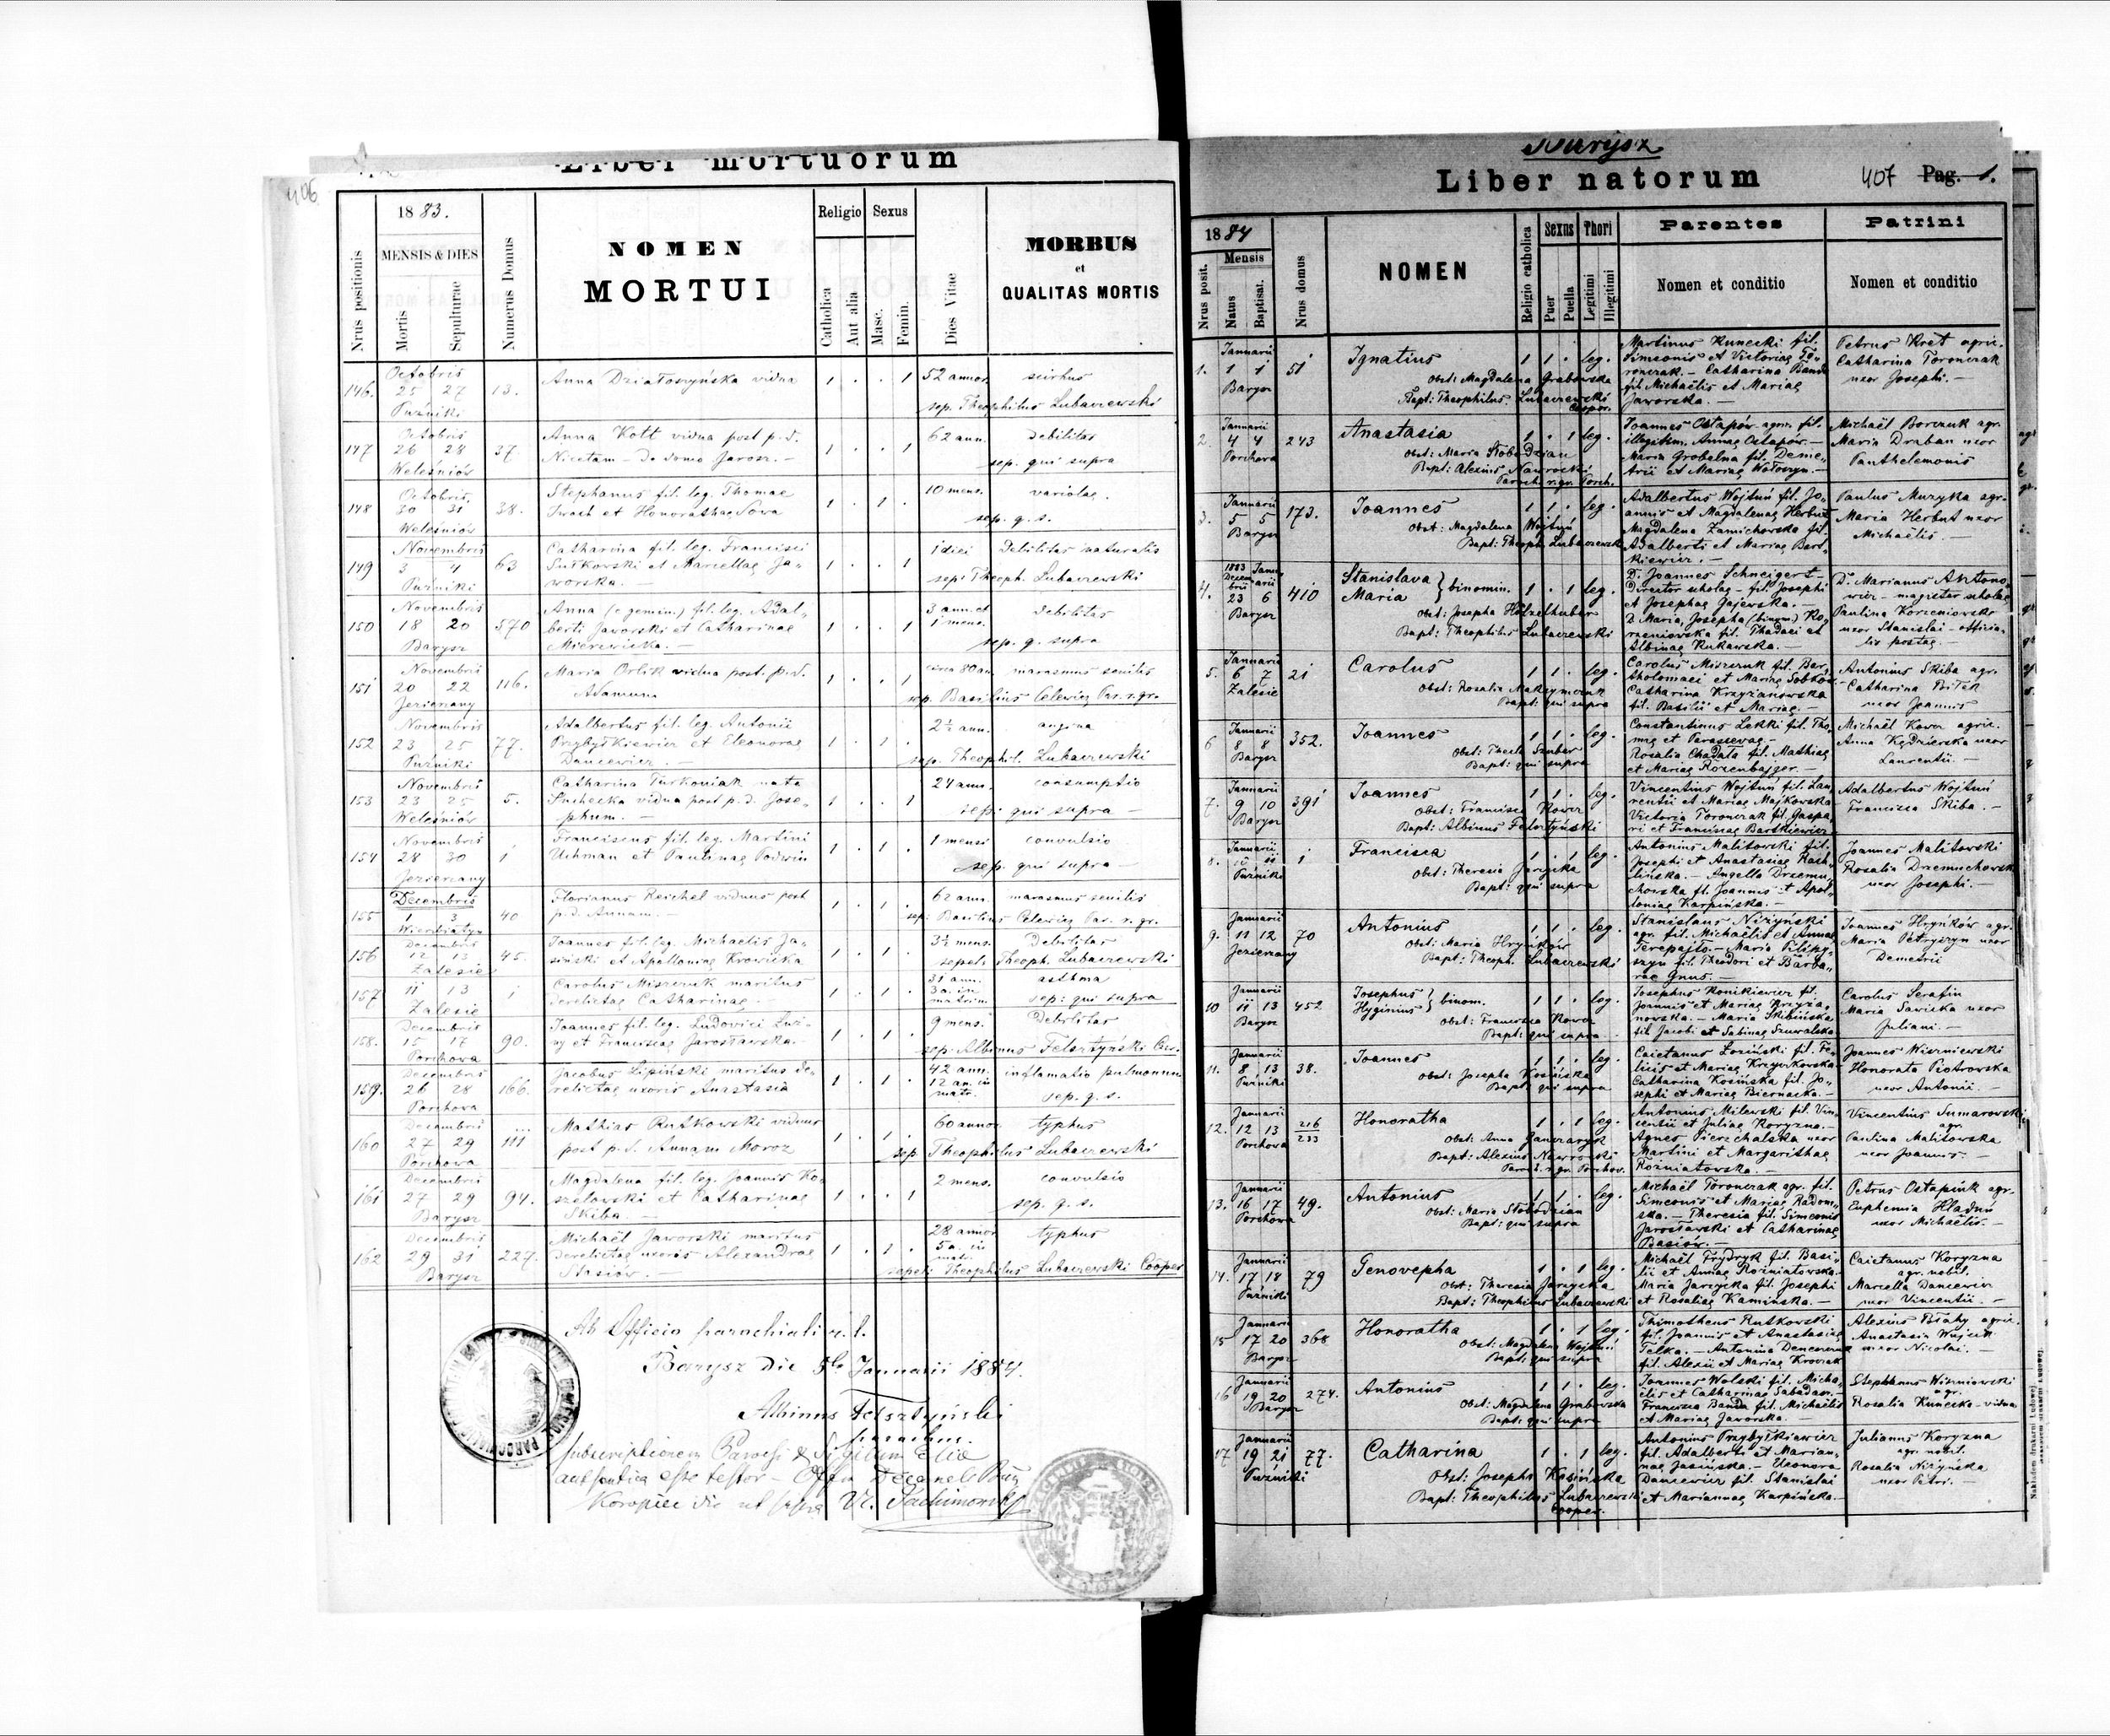 406
Liber mortuorum
1883.
Religio Sexus
Nrus positionis
MENSIS & DIES
Mortis
Sepulturae
Numerus Domus
NOMEN
MORTUI
Catholica
Aut alia
Masc.
Femin.
Dies Vitae
MORBUS
et
QUALITAS MORTIS
Octobris
146. 25 27 13. Anna Działoszyńska vidua 1 . . 1 52 annor. scirhus
Pużniki sep. Theophilus Lubaczewski
Octobris Anna Kott vidua post p.d. 62 ann. debilitas
147 26 28 37. Nicetam - de domo Jarosz. - 1 . . 1
Weleśniów sep. qui supra
Octobris, Stephanus fil. leg. Thomae 10 mens. variolae.
148 30 31 38. Iwach et Honorathae Sowa 1 . 1 .
Weleśniów sep. q. s.
Novembris Catharina fil. leg. Francisci 1 diei Debilitas naturalis
149 3 4 63 Sułkowski et Marcellae Ja-
Pużniki worska. - sep: Theoph. Lubaczewski
Novembris Anna (e gemin.) fil. leg. Adal- 3 ann. et debilitas
150 18 20 570 berti Jaworski et Catharinae 1 . . 1 1 mens.
Barysz sep. q. supra
Novembris Maria Orlik vidua post. p.d. circa 80 an. marasmus senilis
151 20 22 116. Adamum 1 . . 1
Jezierzany sep. Basilius Celewicz Par. r. gr.
Novembris Adalbertus fil. leg. Antonii 2½ ann. angina
152 23 25 77. Przybyłkiewicz et Eleonorae 1 . 1 .
Pużniki Dancewicz. - sep. Theophil. Lubaczewski
Novembris Catharina Turkoniak nata 24 ann. consumptio
153 23 25 5. Suchecka vidua post p.d. Jose- 1 . . 1
Weleśniów phum. - sep: qui supra -
Novembris Franciscus fil. leg. Martini 1 mensi convulsio
154 28 30 1 Uchman et Paulinae Podwin 1 . 1 .
Jezierzany sep. qui supra -
Decembris Florianus Reichel viduus post 62 ann. marasmus senilis
155 1 3 40 p.d. Annam. - 1 . 1 . sep: Basilius Celewicz Par. r. gr.
Decembris Joannes fil. leg. Michaelis Ja- 3½ mens. Debilitas
156 12 13 45. siński et Apolloniae Krowicka 1 . 1 . sepel: Theoph. Lubaczewski
Zalesie
157 11 13 1 Carolus Miszczuk maritus 1 . 1 . 31 ann. asthma
Zalesie derelictae Catharinae. - 3 a. in matrim. sep: qui supra
Decembris Joannes fil. leg. Ludovici Luzi- 9 mens. Debilitas
158. 15 17 90. ny et Franciscae Jarosławska. - 1 . 1 .
Porchowa sep: Albinus Felsztyński Par.
Decembris Jacobus Lipiński maritus de- 42 ann. inflamatio pulmonum
159. 26 28 166. relictae uxoris Anastasia 1 . 1 . 12 an. in matr. sep. q. s.
Porchowa
Decembris Mathias Rutkowski viduus 60 annor. typhus
160 27 29 111 post p.d. Annam Moroz 1 . 1 .
Porchowa sep. Theophilus Lubaczewski
Decembris Magdalena fil. leg. Joannis Ko- 2 mens. convulsio
161 27 29 94. szelowski et Catharinae 1 . . 1
Barysz Skiba. - sep. q. s.
Decembris Michaël Jaworski maritus 28 annor. typhus
162 29 31 227. derelictae uxoris Alexandrae 1 . 1 . 5 a. in matr.
Barysz Stasiów. - sepel: Theophilus Lubaczewski Cooper
Ab Officio parochiali r. l.
Barysz die 5te Januarii 1884.
Albinus Felsztyński
parochus.
subscriptionem Parochi & Sigillum
authentica esse testor -
Koropiec die ut supra
Barysz
Liber natorum
407 Pag. 1.
1884
Mensis
Nrus posit.
Natus
Baptisat.
Nrus domus
NOMEN
Religio catholica
Sexus
Puer
Puella
Thori
Legitimi
Illegitimi
Parentes
Nomen et conditio
Patrini
Nomen et conditio
Januarii Martinus Kunecki fil. Petrus Kret agric.
1. 1 1 51 Ignatius 1 1 . leg. Simeonis et Victoriae To- Catharina Toronczak
Barysz Obst: Magdalena Grabowska ronczak. - Catharina Banda uxor Josephi. -
Bapt: Theophilus Lubaczewski fil. Michaëlis et Mariae
Cooper. Jaworska. -
Januarii Joannes Ostapów agric. fil. Michaël Borczuk agr.
2. 4 4 243 Anastasia 1 . 1 leg. illegitim. Annae Ostapów. - Maria Draban uxor
Porchowa Obst: Maria Słobodzian Maria Grobelna fil. Deme- Panthelemonis
Bapt: Alexius Nawroski trii et Mariae Wołoszyn. -
Paroch. r. gr. Porch.
Januarii Adalbertus Wojtuń fil. Jo- Paulus Muzyka agr.
3. 5 5 173. Joannes 1 1 . leg. annis et Magdalenae Herbut Maria Herbut uxor
Barysz Obst: Magdalena Wojtuń Magdalena Zamichorska fil. Michaëlis. -
Bapt: Theoph. Lubaczewski Adalberti et Mariae Bart-
kiewicz.
1883 Decembris Januarii D. Joannes Schneigert - D. Marianus Antono-
4. 23 6 410 Stanislava Maria } binomin. 1 . 1 leg. Director scholae - fil. Josephi wicz - magister scholae
Barysz Obst: Josepha Hölzelhuber et Josephae Gajewska. - Paulina Korzeniowska
Bapt: Theophilus Lubaczewski D. Maria, Josepha (binom.) Ko- uxor Stanislai - officia-
rzeniowska fil. Thadaei et lis postae.
Albinae Rukawska. -
Januarii Carolus Miszczuk fil. Bar- Antonius Skiba agr.
5. 6 7 21 Carolus 1 1 . leg. tholomaei et Mariae Sobków. Catharina Bitek
Zalesie Obst: Rosalia Maksymczuk Catharina Krzyżanowska uxor Joannis
Bapt: qui supra fil. Basilii et Mariae. -
Januarii Constantinus Lekki fil. Tho- Michaël Kowcz agric.
6 8 8 352. Joannes 1 1 . leg. mae et Parascevae. - Anna Kędzierska uxor
Barysz Obst: Thecla Szubar Rosalia Chadała fil. Mathiae Laurentii. -
Bapt: qui supra et Mariae Rozenbajger. -
Januarii Vincentius Wojtuń fil. Lau- Adalbertus Wojtuń
7. 9 10 391 Joannes 1 1 . leg. rentii et Mariae Majkowska Francisca Skiba. -
Barysz Obst: Francisca Kowcz Victoria Toronczak fil. Gaspa-
Bapt: Albinus Felsztyński ri et Franciscae Bartkiewicz.
Januarii Antonius Malitowski fil. Joannes Malitowski
8. 10 11 1 Francisca 1 . 1 leg. Josephi et Anastasiae Rach- Rosalia Drzemuchowska
Pużniki Obst: Theresia Jarzycka lińska. - Angella Drzemu- uxor Josephi. -
Bapt: qui supra chorska fil. Joannis et Apol-
loniae Karpińska. -
Januarii Stanislaus Niżyński Joannes Hryńków agr.
9. 11 12 70 Antonius 1 1 . leg. agr. fil. Michaëlis et Annae Maria Petryszyn uxor
Jezierzany Obst: Maria Hryńków Terepajto. - Maria Pilipy- Demetrii
Bapt: Theoph. Lubaczewski szyn fil. Theodori et Barba-
rae Gnus. -
Januarii Josephus Konikiewicz fil. Carolus Serafin
10 11 13 452 Josephus Hyginius } binom. 1 1 . leg. Joannis et Mariae Krzyża- Maria Sawicka uxor
Barysz Obst: Francisca Kowcz nowska. - Maria Skibińska Juliani. -
Bapt: qui supra fil. Jacobi et Sabinae Szuwalska
Januarii Caietanus Loziński fil. Fe- Joannes Wiszniewski
11. 8 13 38. Joannes 1 1 . leg. licis et Mariae Krzywkowska Honorata Piotrowska
Pużniki Obst: Josepha Kosińska Catharina Kosińska fil. Jo- uxor Antonii. -
Bapt: qui supra sephi et Mariae Biernacka. -
Januarii Antonius Milewski fil. Vin- Vincentius Sumarowski
12. 12 13 216/233 Honoratha 1 . 1 leg. centii et Juliae Koryzna. - agr.
Porchowa Obst: Anna Ganczaryk Agnes Pierzchalska uxor Paulina Malitowska
Bapt: Alexius Nawroski Martini et Margarithae uxor Joannis. -
Paroch. r. gr. Porchow. Rożniatowska. -
Januarii Michaël Toronczak agr. fil. Petrus Ostapiuk agr.
13. 16 17 49. Antonius 1 1 . leg. Simeonis et Mariae Radom- Euphemia Hładuń
Porchowa Obst: Maria Słobodzian ska. - Theresia fil. Simeonis uxor Michaëlis. -
Bapt: qui supra Jarosławski et Catharinae
Basiów. -
Januarii Michaël Frydryk fil. Basi- Caietanus Koryzna
14. 17 18 79 Genovepha 1 . 1 leg. lii et Annae Rożniatowska. agr. nobil.
Pużniki Obst: Theresia Jarzycka Maria Jarzycka fil. Josephi Marcella Dancewicz
Bapt: Theophilus Lubaczewski et Rosaliae Kamińska. - uxor Vincentii. -
Januarii Thimotheus Rutkowski Alexius Biały agric.
15 17 20 368 Honoratha 1 . 1 leg. fil. Joannis et Anastasiae Anastasia Wujcik
Barysz Obst: Magdalena Wojtuń Telka. - Antonina Denczuk uxor Nicolai. -
Bapt: qui supra fil. Alexii et Mariae Krowiak
Januarii Joannes Wolski fil. Micha- Stephanus Wiszniowski
16 19 20 274. Antonius 1 1 . leg. ëlis et Catharinae Sabadasz. - agr.
Barysz Obst: Magdalena Grabowska Francisca Banda fil. Michaëlis Rosalia Kunecka - vidua
Bapt: qui supra et Mariae Jaworska. -
Januarii Antonius Przybyłkiewicz Julianus Koryzna
17 19 21 77. Catharina 1 . 1 leg. fil. Adalberti et Marian- agr. nobil.
Pużniki Obst: Josepha Kosińska nae Jasińska. - Eleonora Rosalia Niżyńska
Bapt: Theophilus Lubaczewski Dancewicz fil. Stanislai uxor Petri. -
Cooper. et Mariannae Karpińska. -
Nakładem drukarni Ludowej